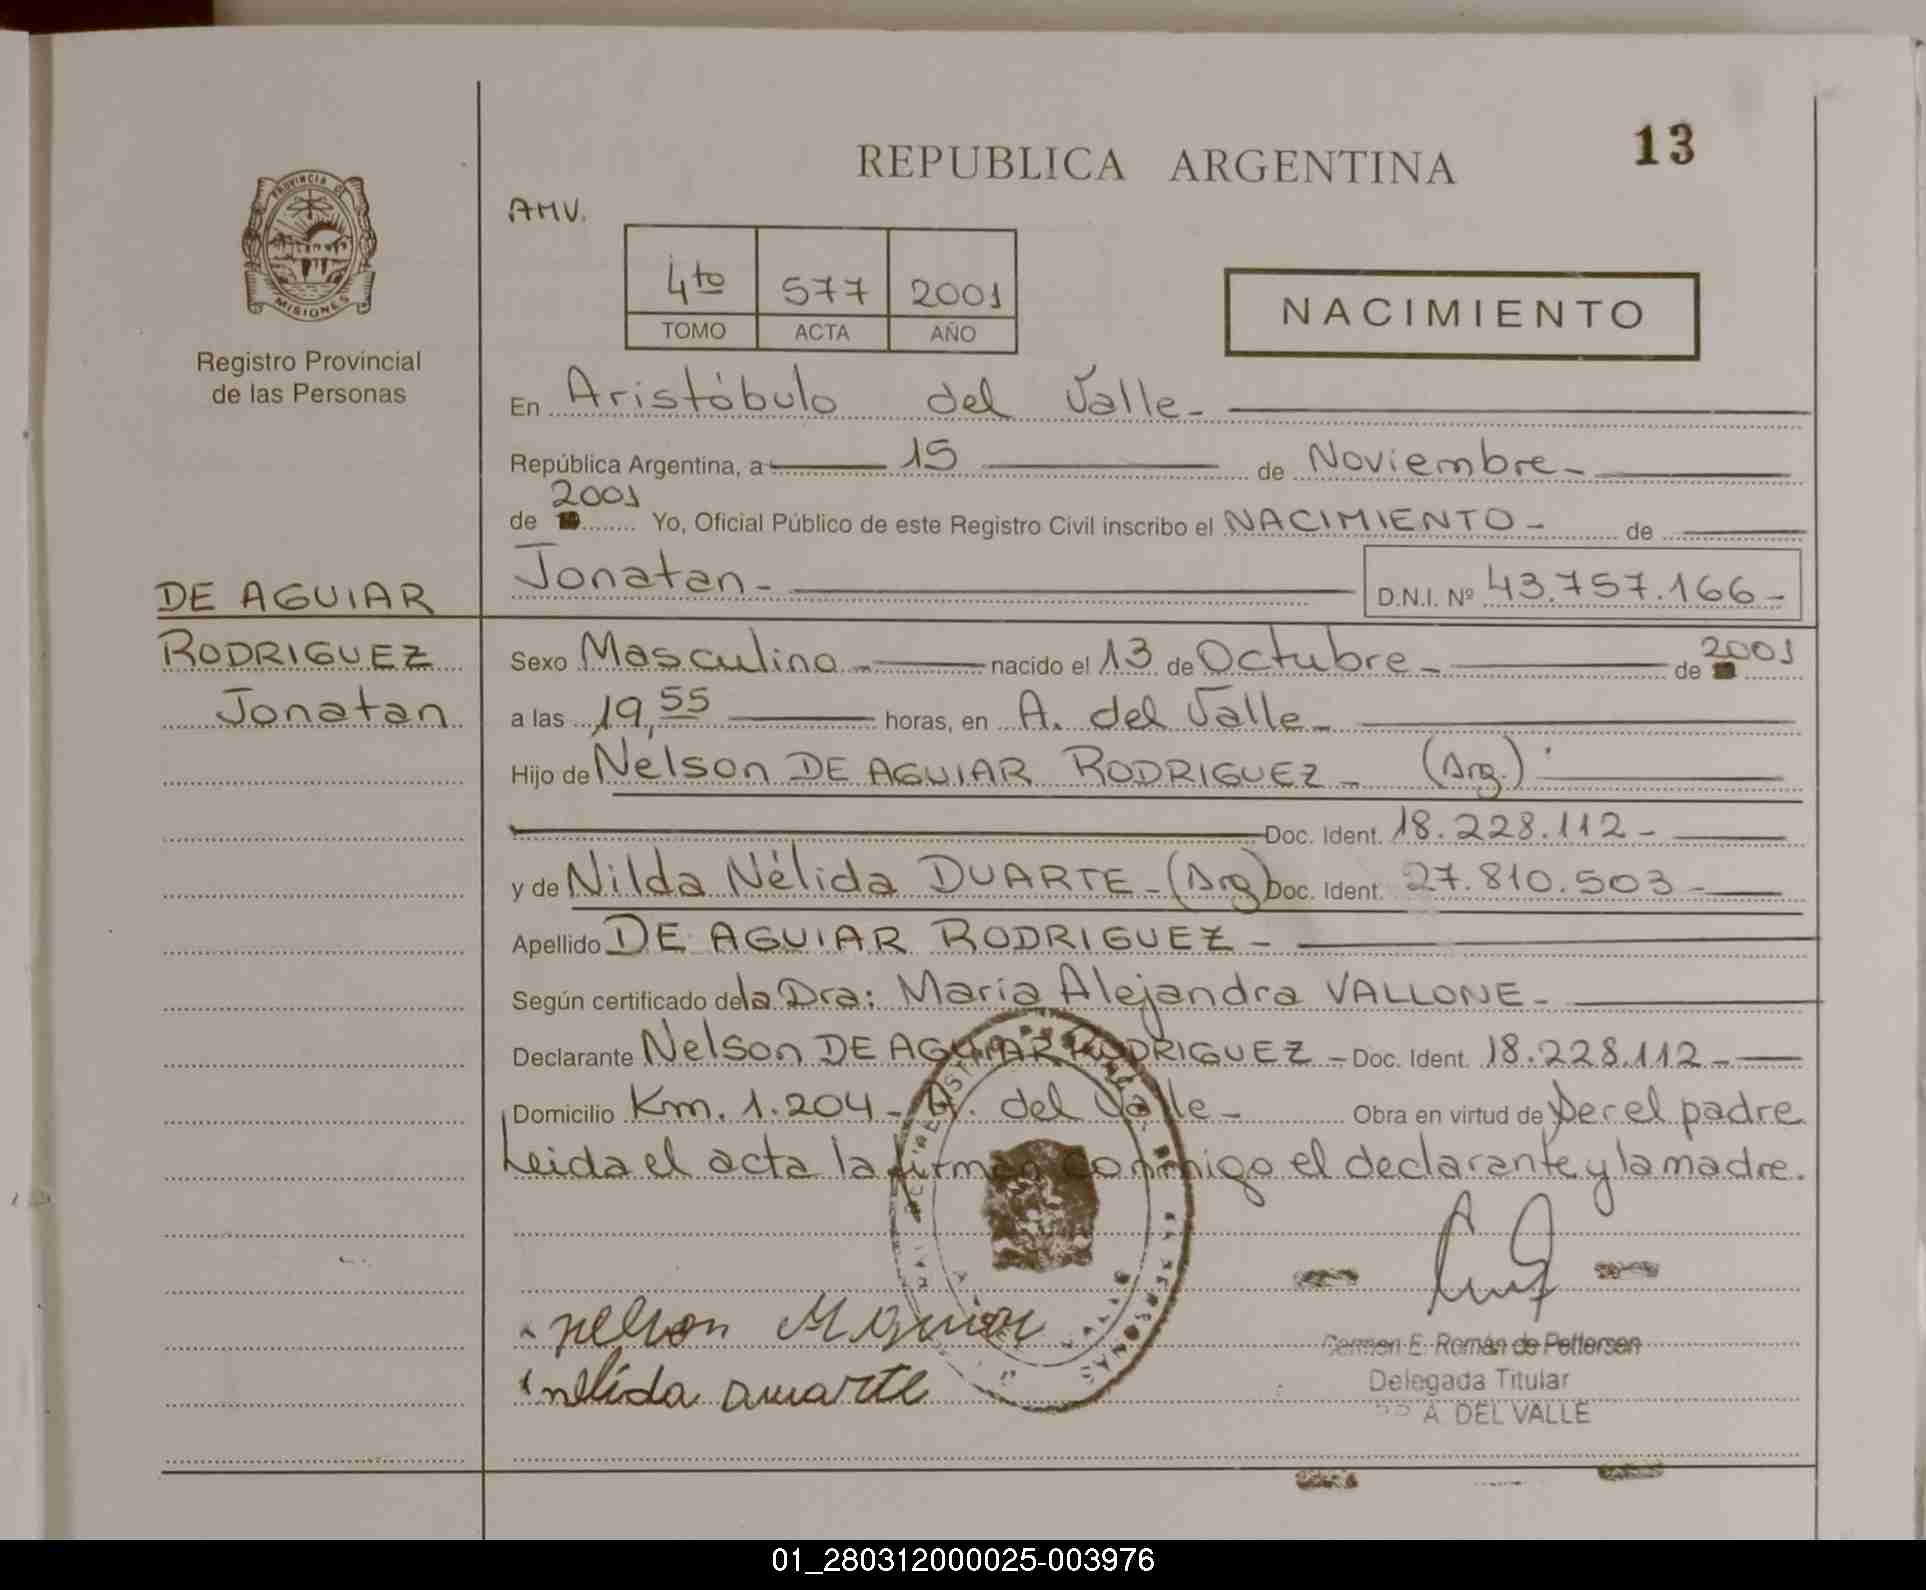 13
REPUBLICA ARGENTINA
PROVINCIA DE
MISIONES
AMV.
4to 577 2001
TOMO ACTA AÑO
NACIMIENTO
Registro Provincial
de las Personas
En Aristóbulo del Valle-
República Argentina, a 15 de Noviembre-
2001
de Yo, Oficial Público de este Registro Civil inscribo el NACIMIENTO- de
Jonatan- D.N.I. Nº 43.757.166-
DE AGUIAR
RODRIGUEZ
Jonatan
Sexo Masculino- nacido el 13 de Octubre- de 2001
a las 19,55 horas, en A. del Valle-
Hijo de Nelson DE AGUIAR RODRIGUEZ- (Arg.)
Doc. Ident. 18.228.112-
y de Nilda Nélida DUARTE-(Arg) Doc. Ident. 27.810.503-
Apellido DE AGUIAR RODRIGUEZ-
Según certificado de la Dra: María Alejandra VALLONE-
Declarante Nelson DE AGUIAR RODRIGUEZ- Doc. Ident. 18.228.112-
Domicilio Km. 1.204- A. del Valle- Obra en virtud de Ser el padre
Leida el acta la firman conmigo el declarante y la madre.
nelson
nelida duarte
Carmen E. Román de Pettersen
Delegada Titular
A. DEL VALLE
01_280312000025-003976